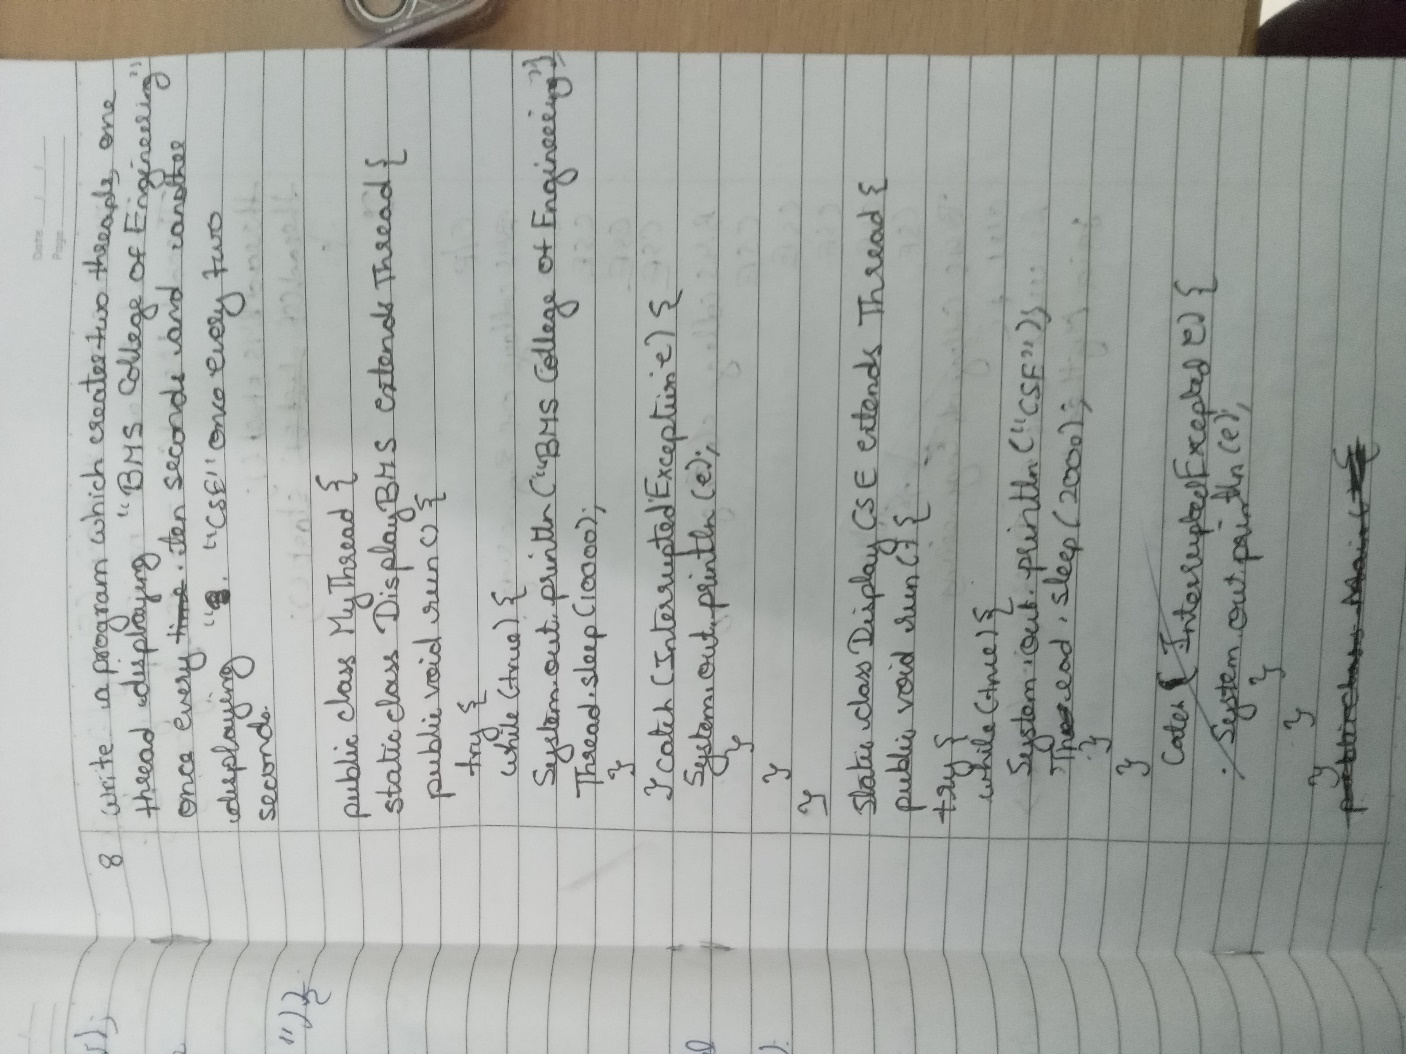 Date
Page
8 Write a program which creates two threads, one
thread displaying "BMS College of Engineering"
once every time. ten seconds and another
displaying "CSE" once every two
seconds.
public class MyThread {
static class DisplayBMS extends Thread {
public void run() {
try {
while (true) {
System.out.println("BMS College of Engineering");
Thread.sleep(10000);
}
} catch (InterruptedException e) {
System.out.println(e);
}
}
}
static class DisplayCSE extends Thread {
public void run() {
try {
while (true) {
System.out.println("CSE");
Thread.sleep(2000);
}
}
Catch { InterruptedExcepted e) {
System.out.println(e);
}
}
}